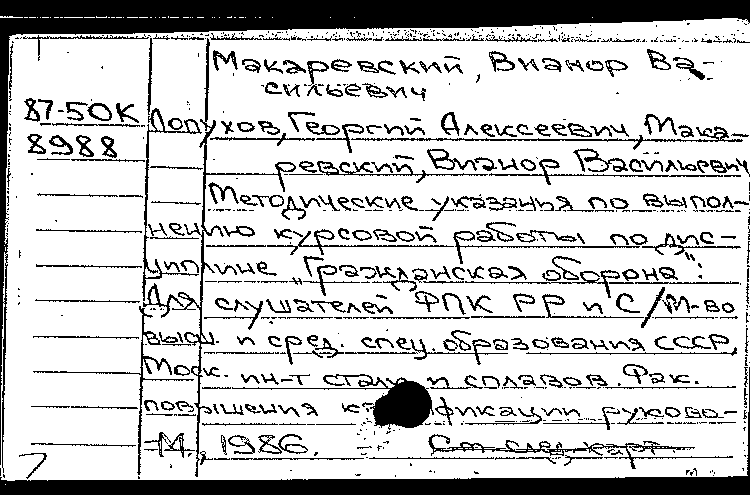 Макаревский, Вианор Ва-
сильевич
87-50К
8988
Лопухов, Георгий Алексеевич, Мака-
ревский, Вианор Васильевич
Методические указания по выпол-
нению курсовой работы по дис-
циплине „Гражданская оборона":
Для слушателей ФПК РР и С/М-во
высш. и сред. спец. образования СССР,
Моск. ин-т стали и сплавов. Фак.
повышения фикации руково-
-М., 1986. См след карт